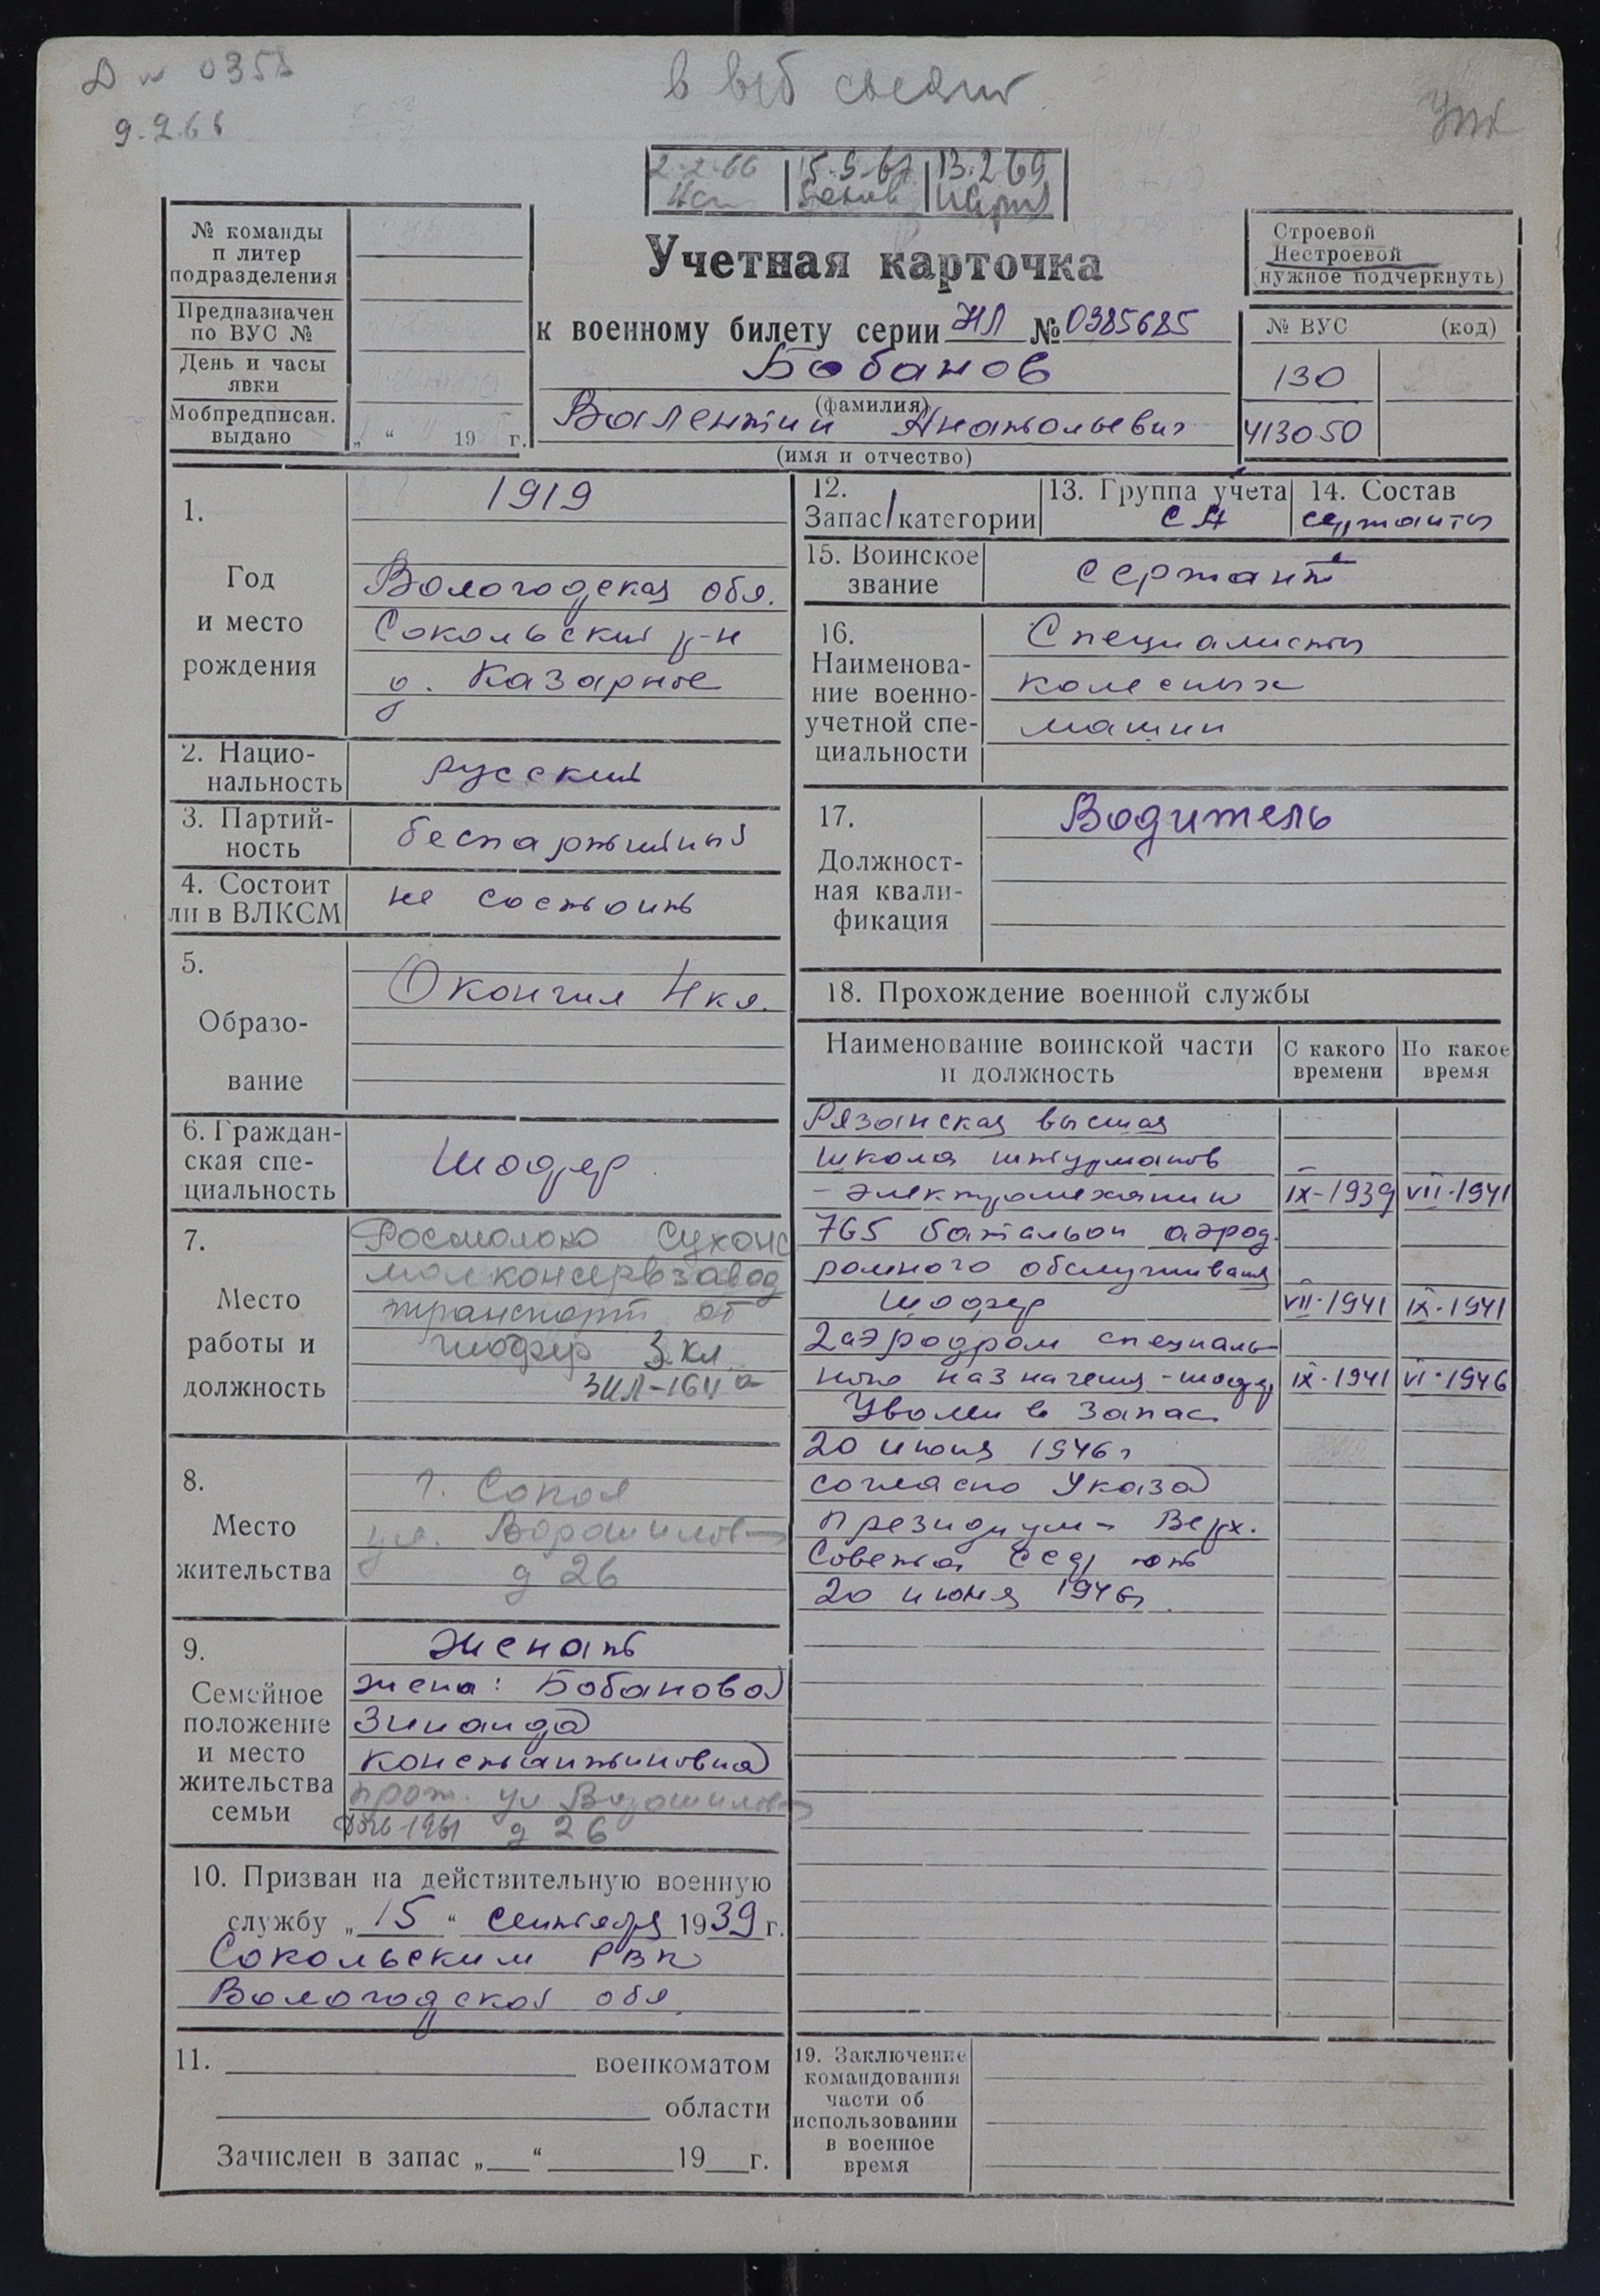 9.2.66
в
2-2-66 15.9.67 13.2.69
№ команды
п литер
подразделения
Предназначен
по ВУС №
День и часы
явки
Мобпредписан.
выдано
„ “ 19 г.
Учетная карточка
к военному билету серии НЛ № 0385685
Бобанов
(фамилия)
Валентин Анатольевич
(имя и отчество)
Строевой
Нестроевой
(нужное подчеркнуть)
№ ВУС (код)
130
413050
1.
Год
и место
рождения
1919
Вологодская обл.
Сокольский р-н
д. Казарное
2. Нацио-
нальность
русский
3. Партий-
ность
беспартийный
4. Состоит
ли в ВЛКСМ
не состоит
5.
Образо-
вание
Окончил 4 кл.
6. Граждан-
ская спе-
циальность
Шофер
7.
Место
работы и
должность
Росмолоко Сухонс
молконсервзавод
транспорт от
шофер 3 кл
ЗИЛ-164 а
8.
Место
жительства
г. Сокол
ул. Ворошилов
д 26
9.
Семейное
положение
и место
жительства
семьи
Женат
жена: Бобанова
Зинаида
Константиновна
прож. ул Ворошилов
д 26
10. Призван на действительную военную
службу „ 15 “ сентября 1939 г.
Сокольским РВК
Вологодской обл.
11. военкоматом
области
Зачислен в запас „ “ 19 г.
12.
Запас/категории
13. Группа учета
СА
14. Состав
сержанты
15. Воинское
звание
сержант
16.
Наименова-
ние военно-
учетной спе-
циальности
Специалисты
колесных
машин
17.
Должност-
ная квали-
фикация
Водитель
18. Прохождение военной службы
Наименование воинской части
и должность
С какого
времени
По какое
время
Рязанская высшая
школа штурманов
- электромеханик IX-1939 VII-1941
765 батальон аэрод
ромного обслуживания
Шофер VII-1941 IX-1941
2 аэродром специаль-
ного назначения - шофер IX-1941 VI-1946
Уволен в запас
20 июня 1946 г
согласно Указа
президиума Верх.
Совета СССР от
20 июня 1946 г.
19. Заключение
командования
части об
использовании
в военное
время